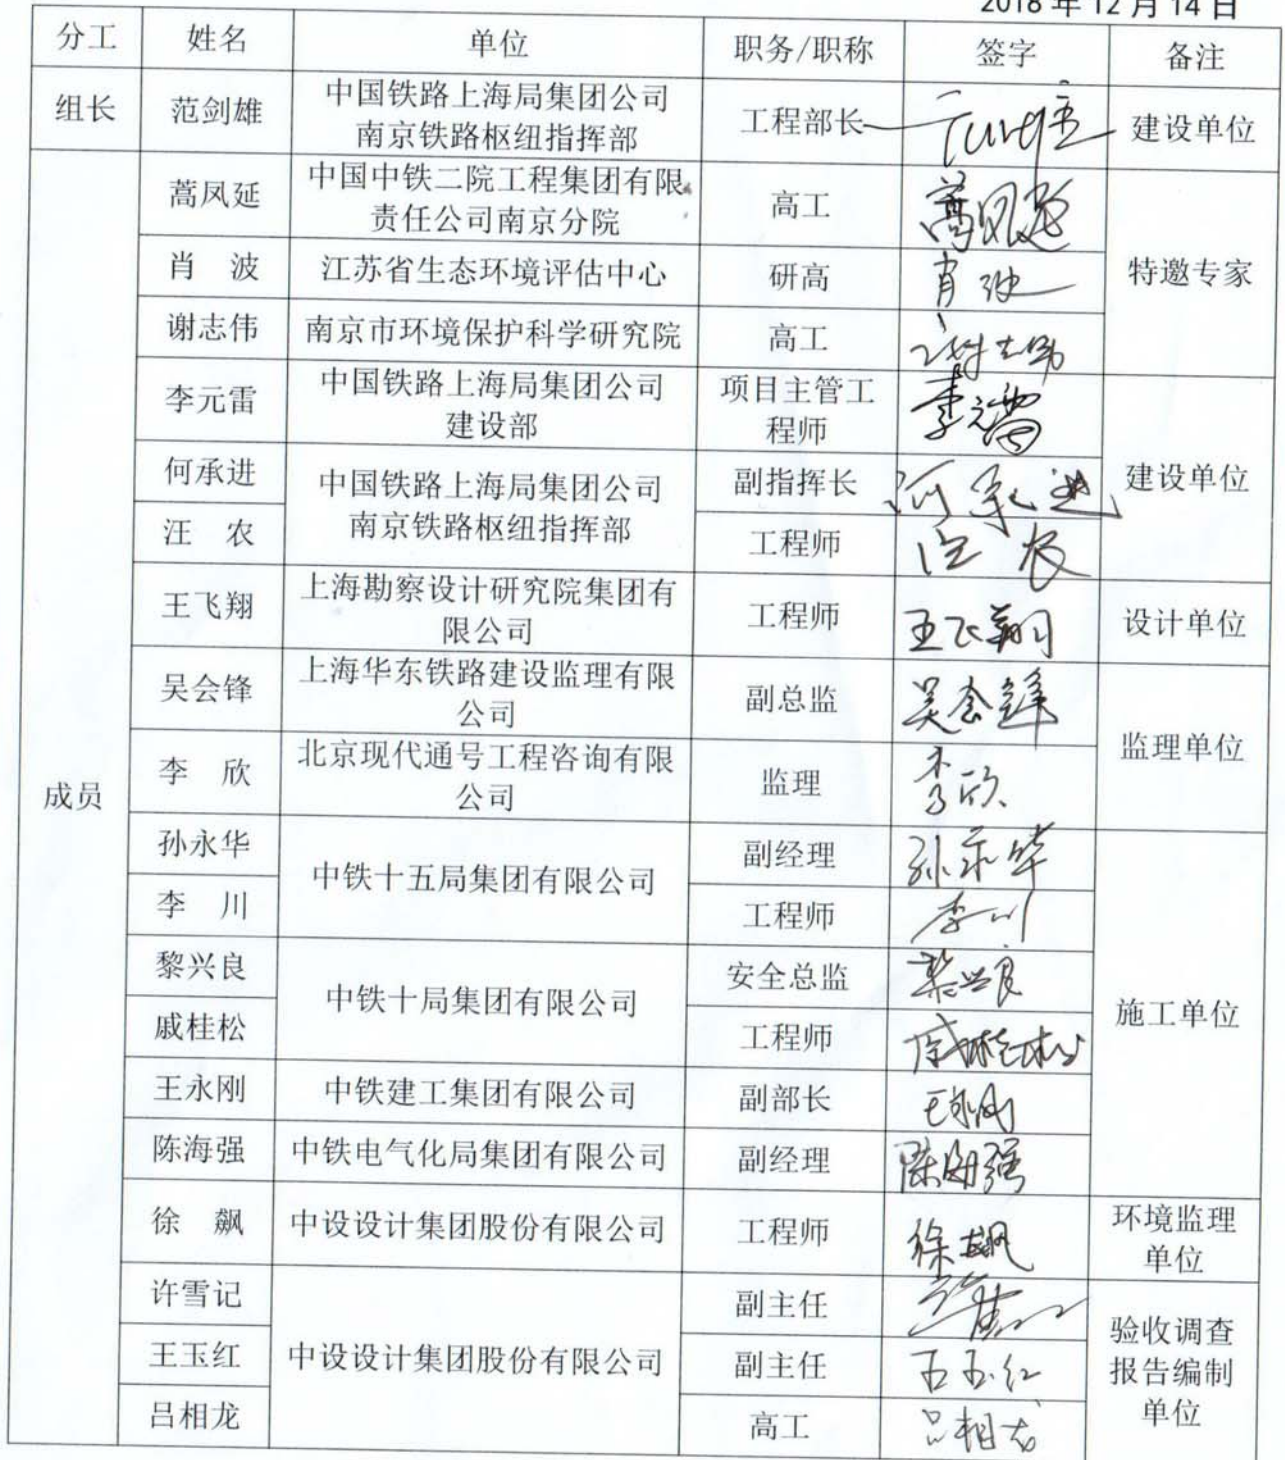 2018 年 12 月 14 日
分工 姓名 单位 职务/职称 签字 备注
组长 范剑雄 中国铁路上海局集团公司
南京铁路枢纽指挥部 工程部长 建设单位
成员
蒿凤延 中国中铁二院工程集团有限
责任公司南京分院 高工 蒿凤延
特邀专家
肖 波 江苏省生态环境评估中心 研高 肖波
谢志伟 南京市环境保护科学研究院 高工 谢志伟
李元雷 中国铁路上海局集团公司
建设部 项目主管工
程师 李元雷
建设单位
何承进 中国铁路上海局集团公司
南京铁路枢纽指挥部 副指挥长 何承进
汪 农 工程师 汪农
王飞翔 上海勘察设计研究院集团有
限公司 工程师 王飞翔 设计单位
吴会锋 上海华东铁路建设监理有限
公司 副总监 吴会锋
监理单位
李 欣 北京现代通号工程咨询有限
公司 监理 李欣
孙永华 中铁十五局集团有限公司 副经理 孙永华
李 川 工程师 李川
黎兴良 中铁十局集团有限公司 安全总监 黎兴良
施工单位
戚桂松 工程师 戚桂松
王永刚 中铁建工集团有限公司 副部长 王永刚
陈海强 中铁电气化局集团有限公司 副经理 陈海强
徐 飙 中设设计集团股份有限公司 工程师 徐飙 环境监理
单位
许雪记 中设设计集团股份有限公司 副主任
验收调查
报告编制
单位
王玉红 副主任 王玉红
吕相龙 高工 吕相龙